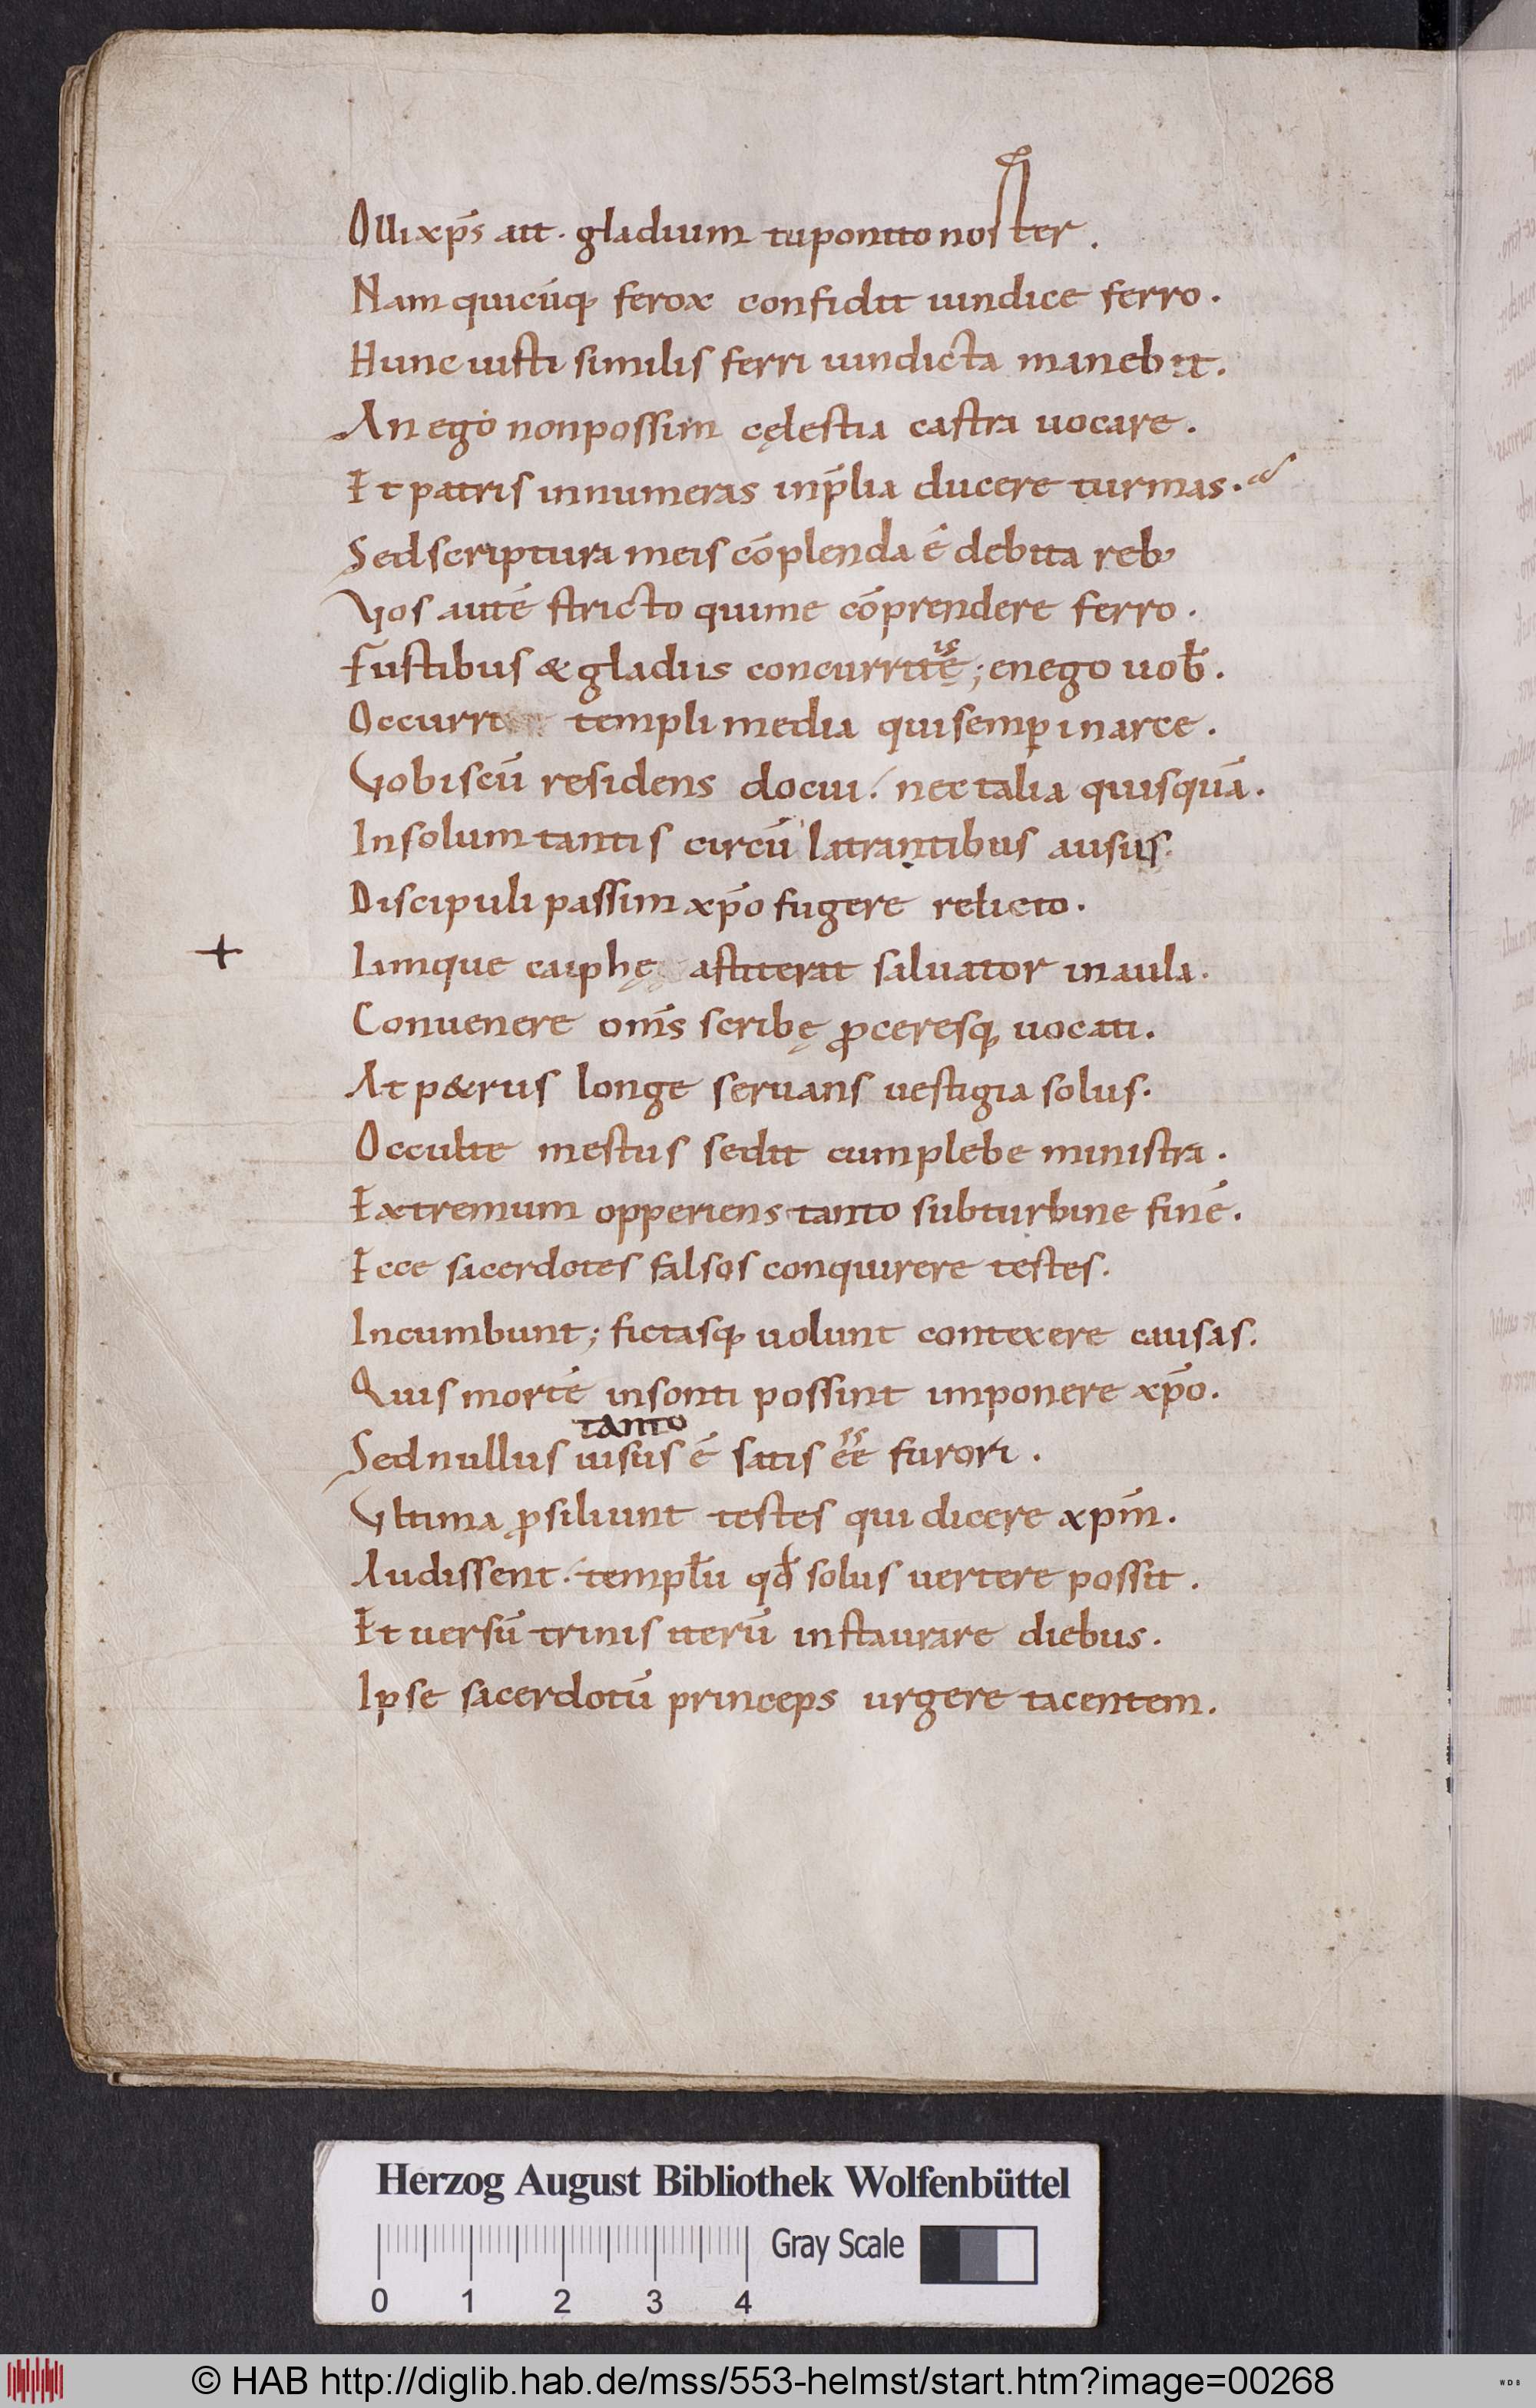 Olli xp̄s ait. gladium tu ponito noster.
Nam quicūq; ferox confidit uindice ferro.
Hunc iusti similis ferri uindicta manebit.
An ego non possim cęlestia castra uocare.
Et patris innumeras in p̄lia ducere turmas.
Sed scriptura meis cōplenda ē debita reb;
Vos autē stricto qui me cōprendere ferro.
is
Fustibus & gladiis concurritē; en ego uob̄.
Occurri templi media qui semp̱ in arce.
Vobiscū residens docui. nec talia quisquā.
In solum tantis circū latrantibus ausus.
Discipuli passim xp̄o fugere relicto.
+ Iamque caiphę astiterat saluator in aula.
Conuenere om̄s scribę ꝓceresq; uocati.
At p&rus longe seruans uestigia solus.
Occulte mestus sedit cum plebe ministra.
Extremum opperiens tanto sub turbine finē.
Ecce sacerdotes falsos conquirere testes.
Incumbunt; fictasq; uolunt contexere causas.
Quis mortē insonti possint imponere xp̄o.
tanto
Sed nullus uisus ē satis ēē furori.
Vltima ꝓsiliunt testes qui dicere xpm̄.
Audissent. templū qđ solus uertere possit.
Et uersū trinis iterū instaurare diebus.
Ipse sacerdotū princeps urgere tacentem.
Herzog August Bibliothek Wolfenbüttel
Gray Scale
0 1 2 3 4
© HAB http://diglib.hab.de/mss/553-helmst/start.htm?image=00268
WDB